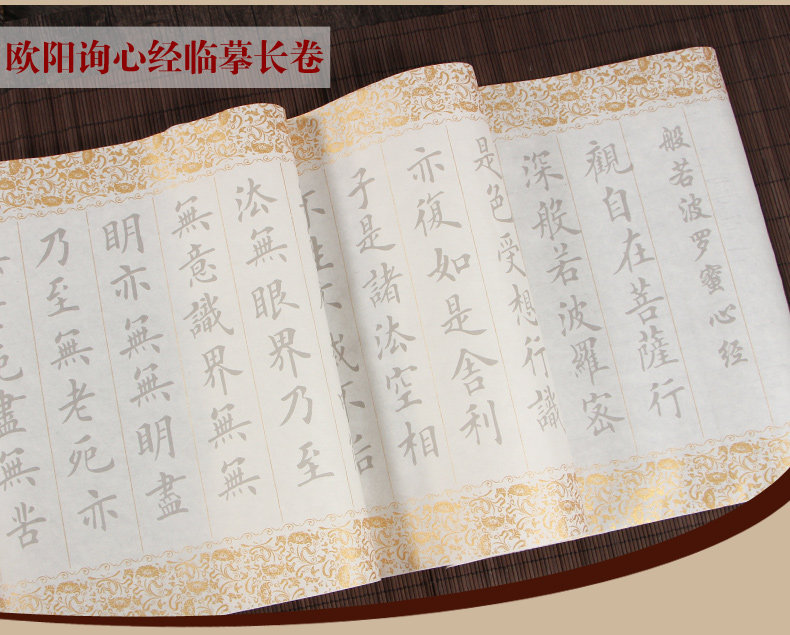 欧阳询心经临摹长卷
般若波罗蜜心经
觀自在菩薩行
深般若波羅蜜
是色受想行識
亦復如是舎利
子是諸法空相
不生不滅不垢
法無眼界乃至
無意識界無無
明亦無無明盡
乃至無老死亦
盡無苦